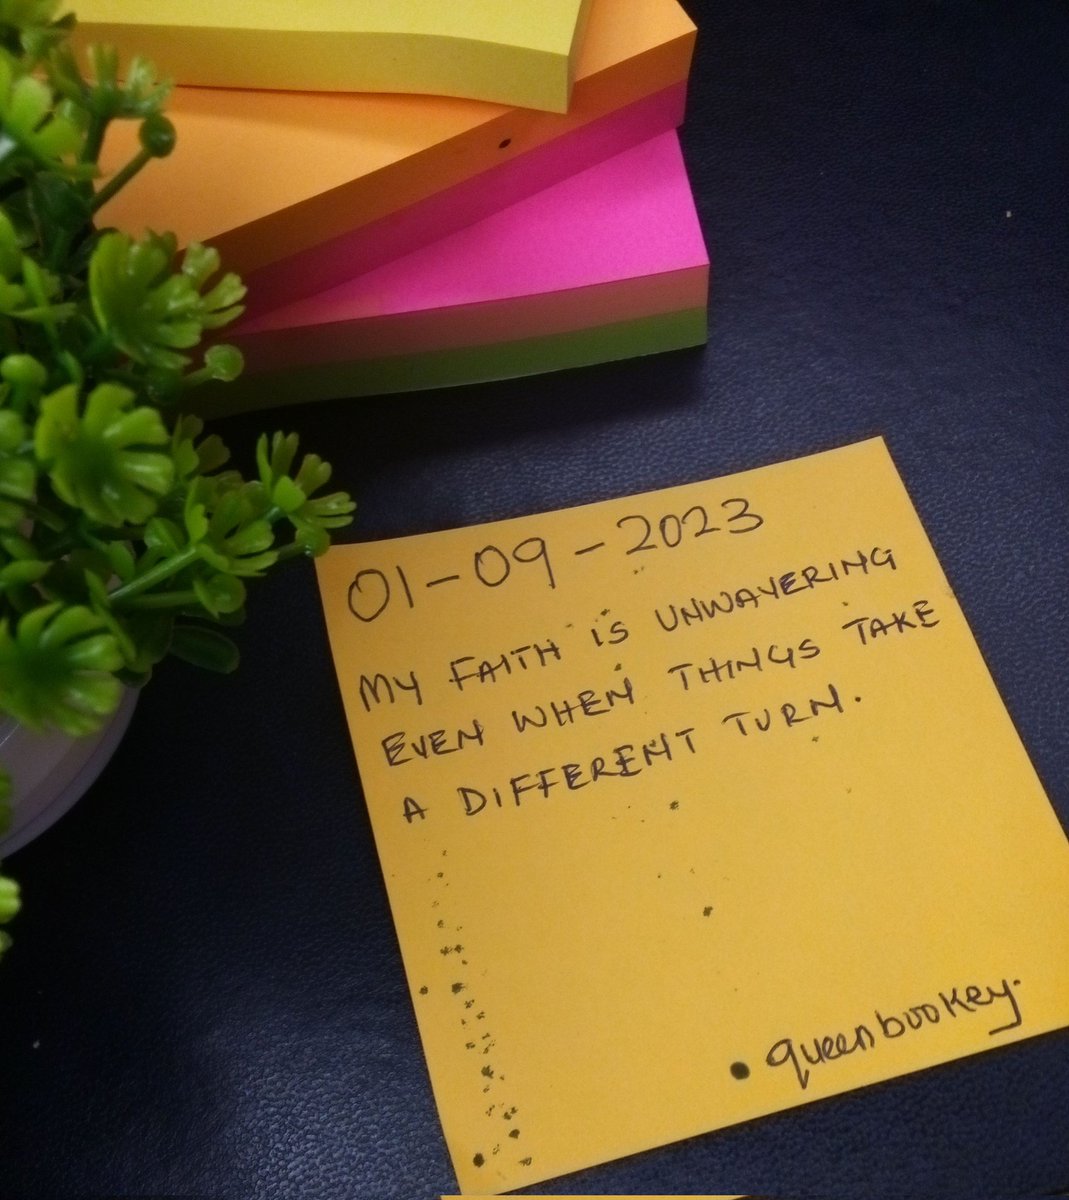 01-09-2023
MY FAITH IS UNWAVERING
EVEN WHEN THINGS TAKE
A DIFFERENT TURN.
queenbookey.